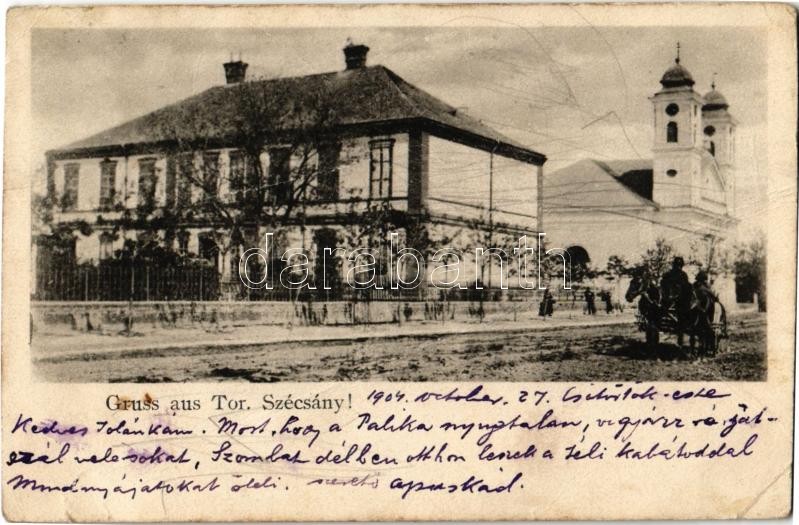 darabanth
Gruss aus Tor. Szécsány! 1904. october. 27. Csütörtök-este
Kedves Jolánkám. Most, hogy a Palika nyugtalan, vigyázz rá, ját-
szál vele sokat, Szombat délben otthon leszek a téli kabátoddal
Mindnyájatokat öleli. szerető apuskád.